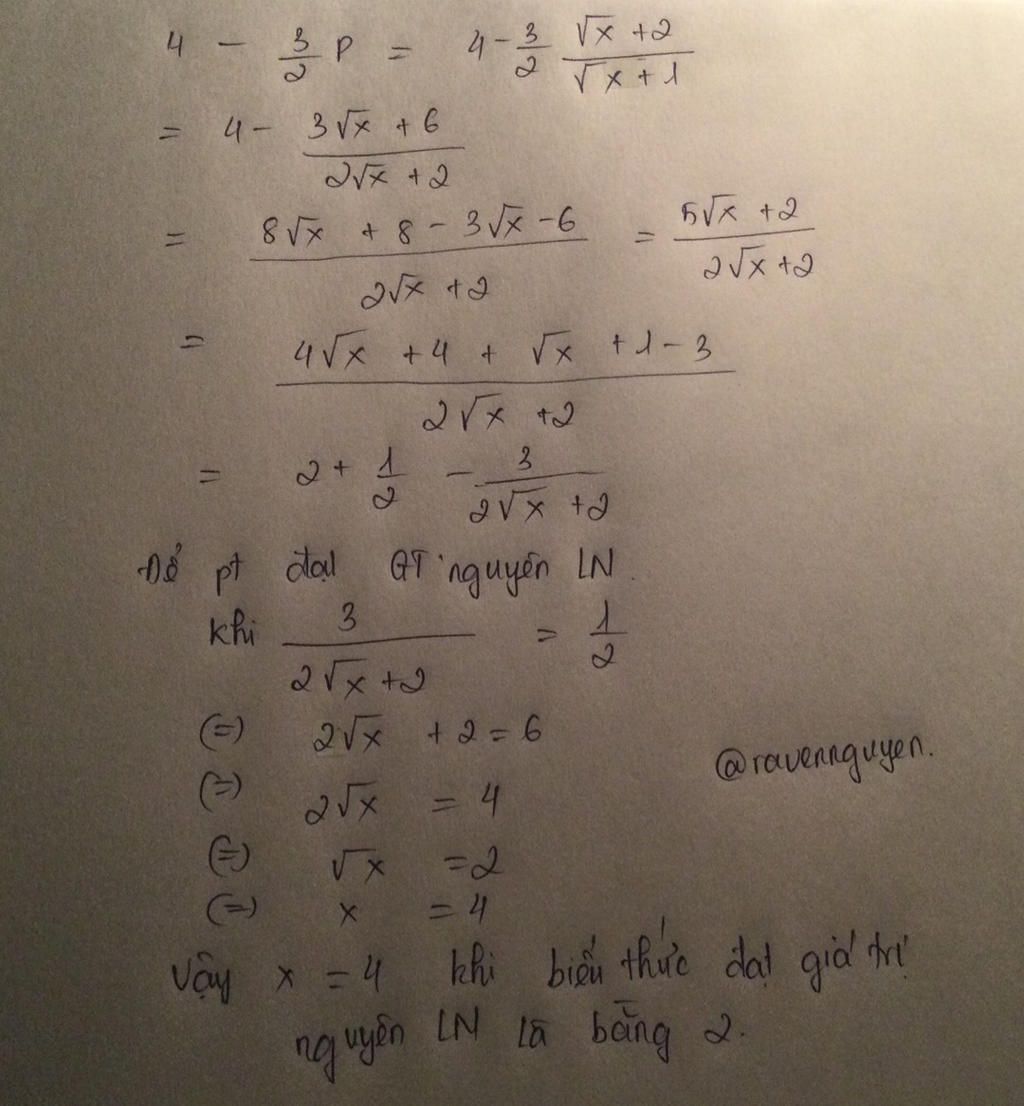 4 - 3/2 P = 4 - 3/2 (√x + 2)/(√x + 1)
= 4 - (3√x + 6)/(2√x + 2)
= (8√x + 8 - 3√x - 6)/(2√x + 2) = (5√x + 2)/(2√x + 2)
= (4√x + 4 + √x + 1 - 3)/(2√x + 2)
= 2 + 1/2 - 3/(2√x + 2)
Để pt đạt GT nguyên LN.
khi 3/(2√x + 2) = 1/2
(=) 2√x + 2 = 6
@ravennguyen.
(=) 2√x = 4
(=) √x = 2
(=) x = 4
Vậy x = 4 khi biểu thức đạt giá trị
nguyên LN là bằng 2.